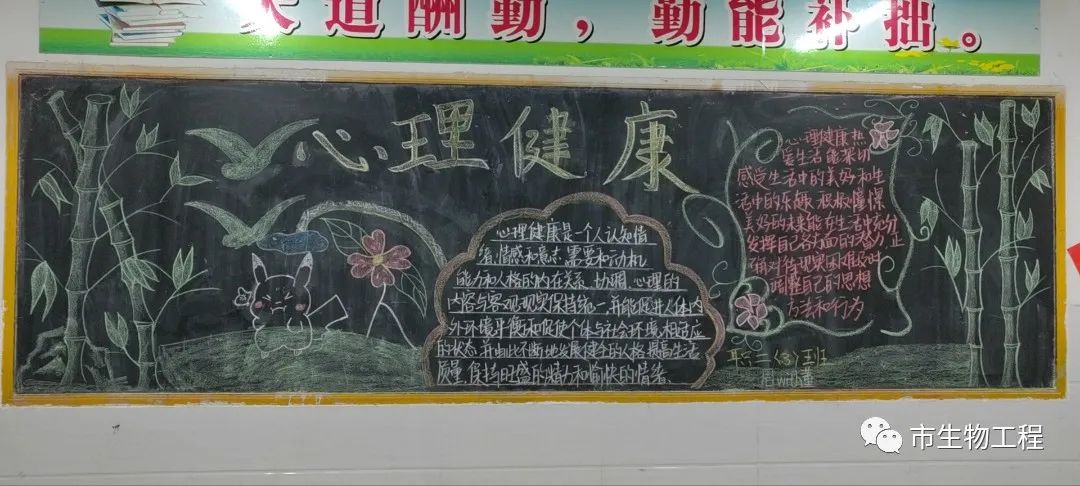 天道酬勤，勤能补拙。
心理健康
心理健康是一个人认知情
绪、情感和意志、需要和动机、
能力和人格的内在关系协调,心理的
内容与客观现实保持统一,并能促进人体内
外环境平衡和促使个体与社会环境相适应
的状态,并由此不断地发展健全的人格,提高生活
质量,保持旺盛的精力和愉快的情绪、
心理健康热
爱生活能深切
感受生活中的美好和生
活中的乐趣积极憧憬
美好的未来能在生活中充分
发挥自己各方面的潜力,正
确对待现实困难及时
调整自己的思想
方法和行为
职二〈3〉班
市生物工程